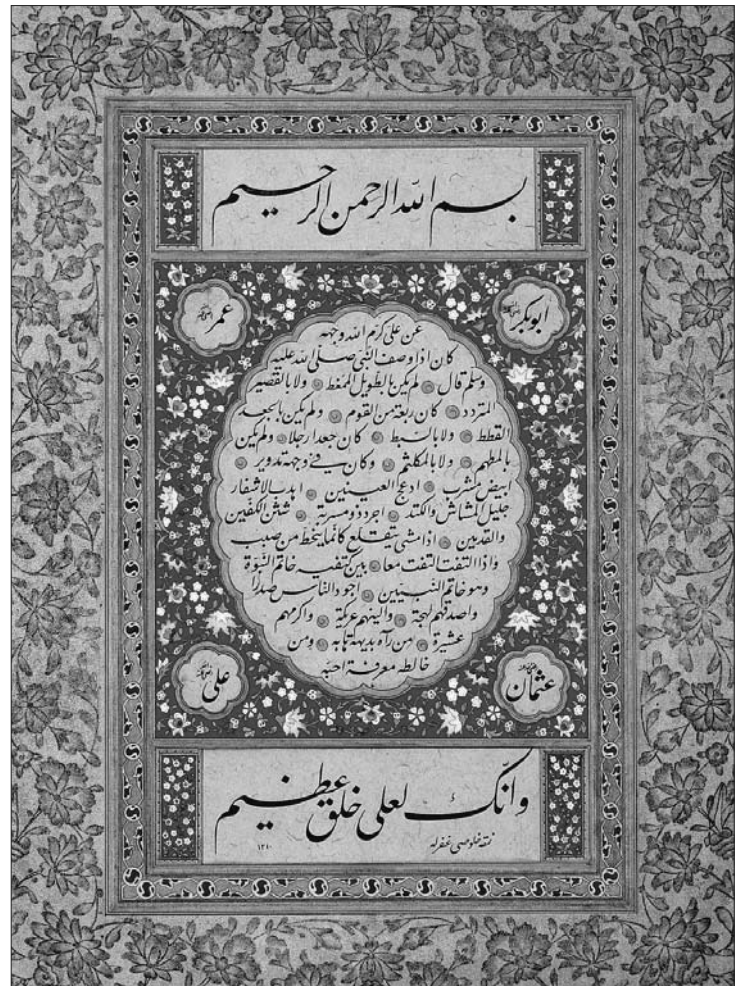 بسم الله الرحمن الرحيم
ابوبكر
عمر
عن على كرم الله وجهه
كان اذا وصف النبى صلى الله عليه
وسلم قال لم يكن بالطويل الممغط ولا بالقصير
المتردد كان ربعة من القوم ولم يكن بالجعد
القطط ولا بالسبط كان جعدا رجلا ولم يكن
بالمطهم ولا بالمكلثم وكان فى وجهه تدوير
ابيض مشرب ادعج العينين اهدب الاشفار
جليل المشاش والكتد اجرد ذو مسربة شثن الكفين
والقدمين اذا مشى يتقلع كانما ينحط من صبب
واذا التفت التفت معا بين كتفيه خاتم النبوة
وهو خاتم النبيين اجود الناس صدرا
واصدقهم لهجة والينهم عريكة واكرمهم
عشيرة من رآه بديهة هابه ومن
خالطه معرفة احبه
عثمان
على
وانك لعلى خلق عظيم
نمقه خلوصى غفرله